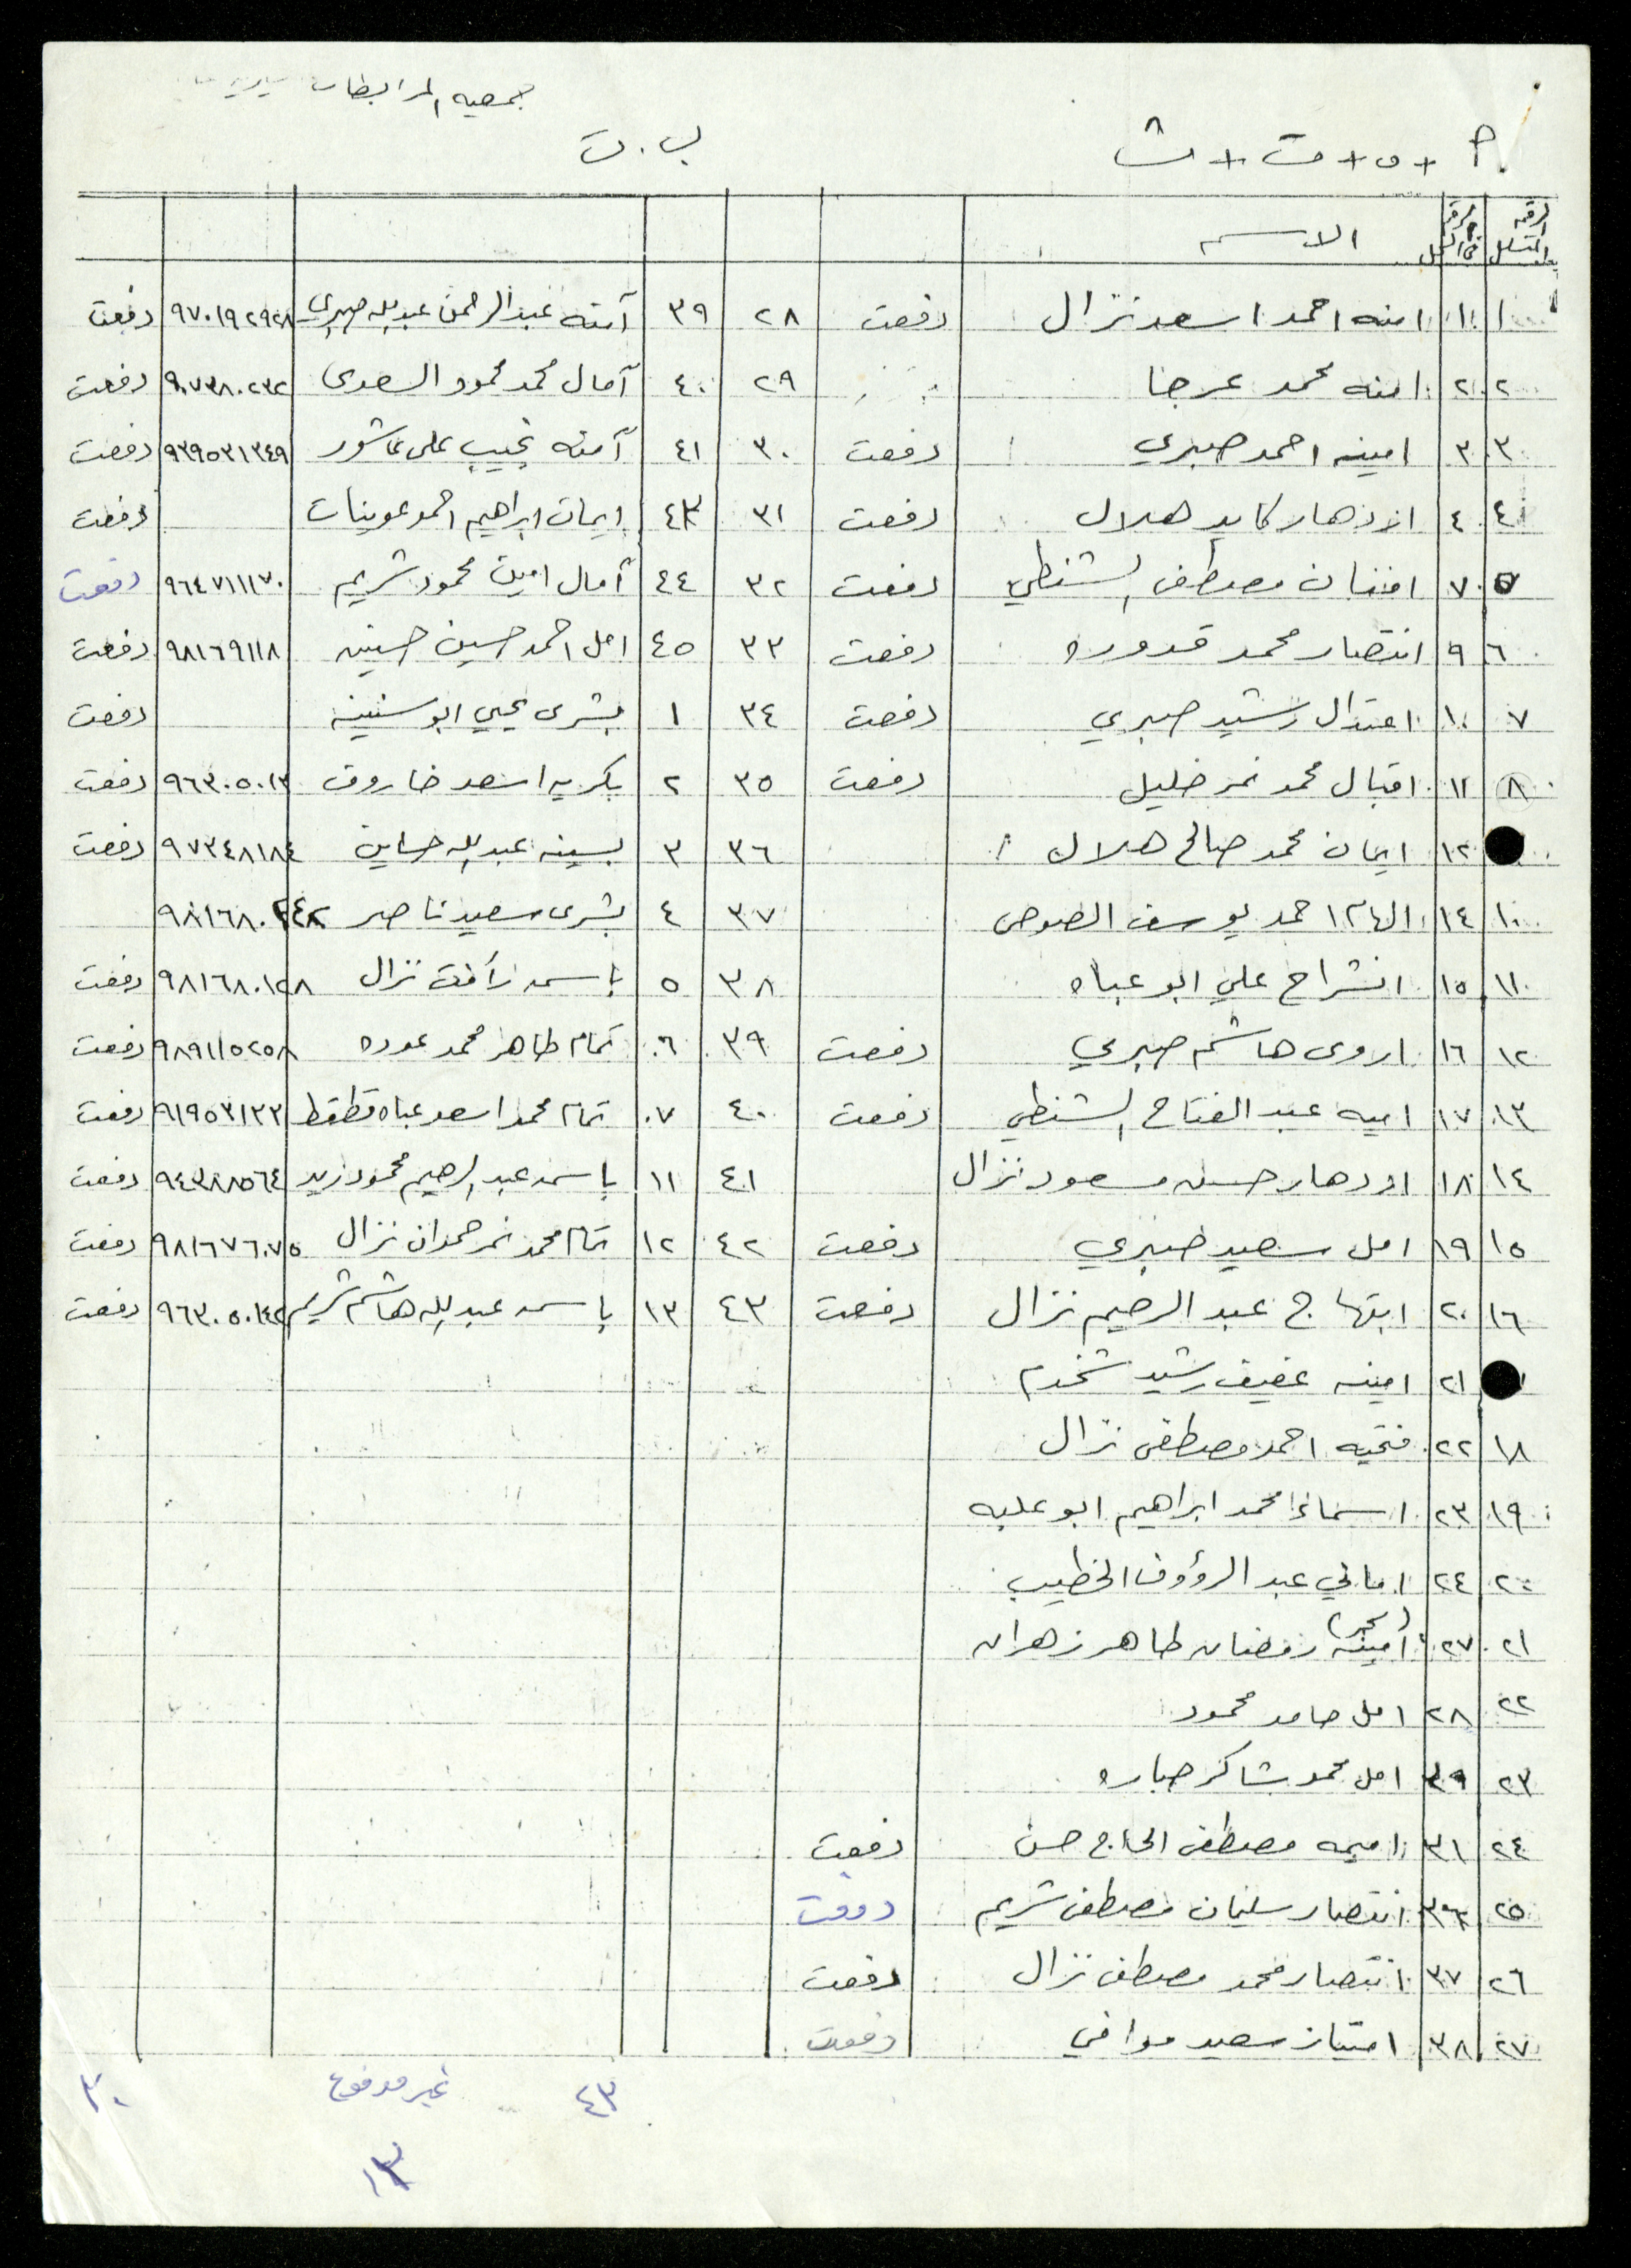 جمعيه المرابطات
أ + ب + ت + ث
ب . ت
الرقم المتسلسل الرقم في السجل الاسم
١ ١ امنه احمد اسعد نزال دفعت ٢٨ ٣٩ آمنه عبد الرحمن عبد الله صبري ٩٧٠١٩٢٩٢٨ دفعت
٢ ٢ امنه محمد عرجا ٢٩ ٤٠ آمال محمد محمود السعدى ٩٠٧٣٨٠٢٣٢ دفعت
٣ ٣ امينه احمد صبري دفعت ٣٠ ٤١ آمنه نجيب على عاشور ٩٣٩٥٣١٣٤٩ دفعت
٤ ٤ ازدهار كايد هلال دفعت ٣١ ٤٣ إيمان ابراهيم احمد عوينات دفعت
٥ ٧ افنان مصطفى الشنطي دفعت ٣٢ ٤٤ آمال امين محمود شريم ٩٦٤٧١١١٧٠ دفعت
٦ ٩ انتصار محمد قدوره دفعت ٣٣ ٤٥ امل احمد حسين حسينيه ٩٨١٦٩١١٨ دفعت
٧ ١٠ اعتدال رشيد صبري دفعت ٣٤ ١ بشرى يحيي ابو سنينه دفعت
٨ ١١ اقبال محمد نمر خليل دفعت ٣٥ ٢ بكريه اسعد خاروف ٩٦٣٠٥٠١٣ دفعت
١٢ ايمان محمد صالح هلال ٣٦ ٣ بسينه عبد الله حساين ٩٧٣٤٨١٨٤ دفعت
١٠ ١٤ الهام احمد يوسف الصوص ٣٧ ٤ بشرى سعيد ناصر
١١ ١٥ انشراح علي ابو عباه ٣٨ ٥ باسمه رأفت نزال ٩٨١٦٨٠١٢٨ دفعت
١٢ ١٦ اروى هاشم صبري دفعت ٣٩ ٦ تمام طاهر محمد عوده ٩٨٩١١٥٢٥٨ دفعت
١٣ ١٧ اميه عبد الفتاح الشنطي دفعت ٤٠ ٧ تمام محمد اسعد عباه قطقط ٩١٩٥٣١٢٢ دفعت
١٤ ١٨ ازدهار حسن مسعود نزال ٤١ ١١ باسمه عبد الرحيم محمود زيد ٩٤٣٨٨٥٦٤ دفعت
١٥ ١٩ امل سعيد صبري دفعت ٤٢ ١٢ تمام محمد نمر حمدان نزال ٩٨١٦٧٦٠٧٥ دفعت
١٦ ٢٠ ابتهاج عبد الرحيم نزال دفعت ٤٣ ١٣ باسمه عبد الله هاشم شريم ٩٦٣٠٥٠١٤٢ دفعت
٢١ امينه عفيف رشيد شخدم
١٨ ٢٢ فتحيه احمد مصطفى نزال
١٩ ٢٣ اسماء محمد ابراهيم ابو علبه
٢٠ ٢٤ اماني عبد الرؤوف الخطيب
٢١ ٢٧ أمينه رمضان طاهر زهران
٢٢ ٢٨ امل حامد محمود
٢٣ ٢٩ امل محمد شاكر جباره
٢٤ ٣١ اميمه مصطفى الحاج حسن دفعت
٢٥ ٣٦ انتصار سليمان مصطفى شريم دفعت
٢٦ ٣٧ انتصار محمد مصطفى نزال دفعت
٢٧ ٣٨ امتياز سعيد موافي دفعت
٤٣ غير مدفوع ٣٠
١٣